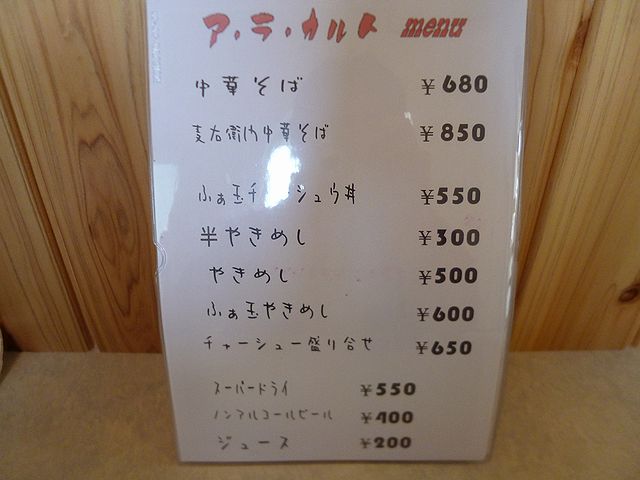 ア・ラ・カルト menu
中華そば ¥680
麦右衛門中華そば ¥850
ふぁ玉チャーシュウ丼 ¥550
半やきめし ¥300
やきめし ¥500
ふぁ玉やきめし ¥600
チャーシュー盛り合せ ¥650
スーパードライ ¥550
ノンアルコールビール ¥400
ジュース ¥200